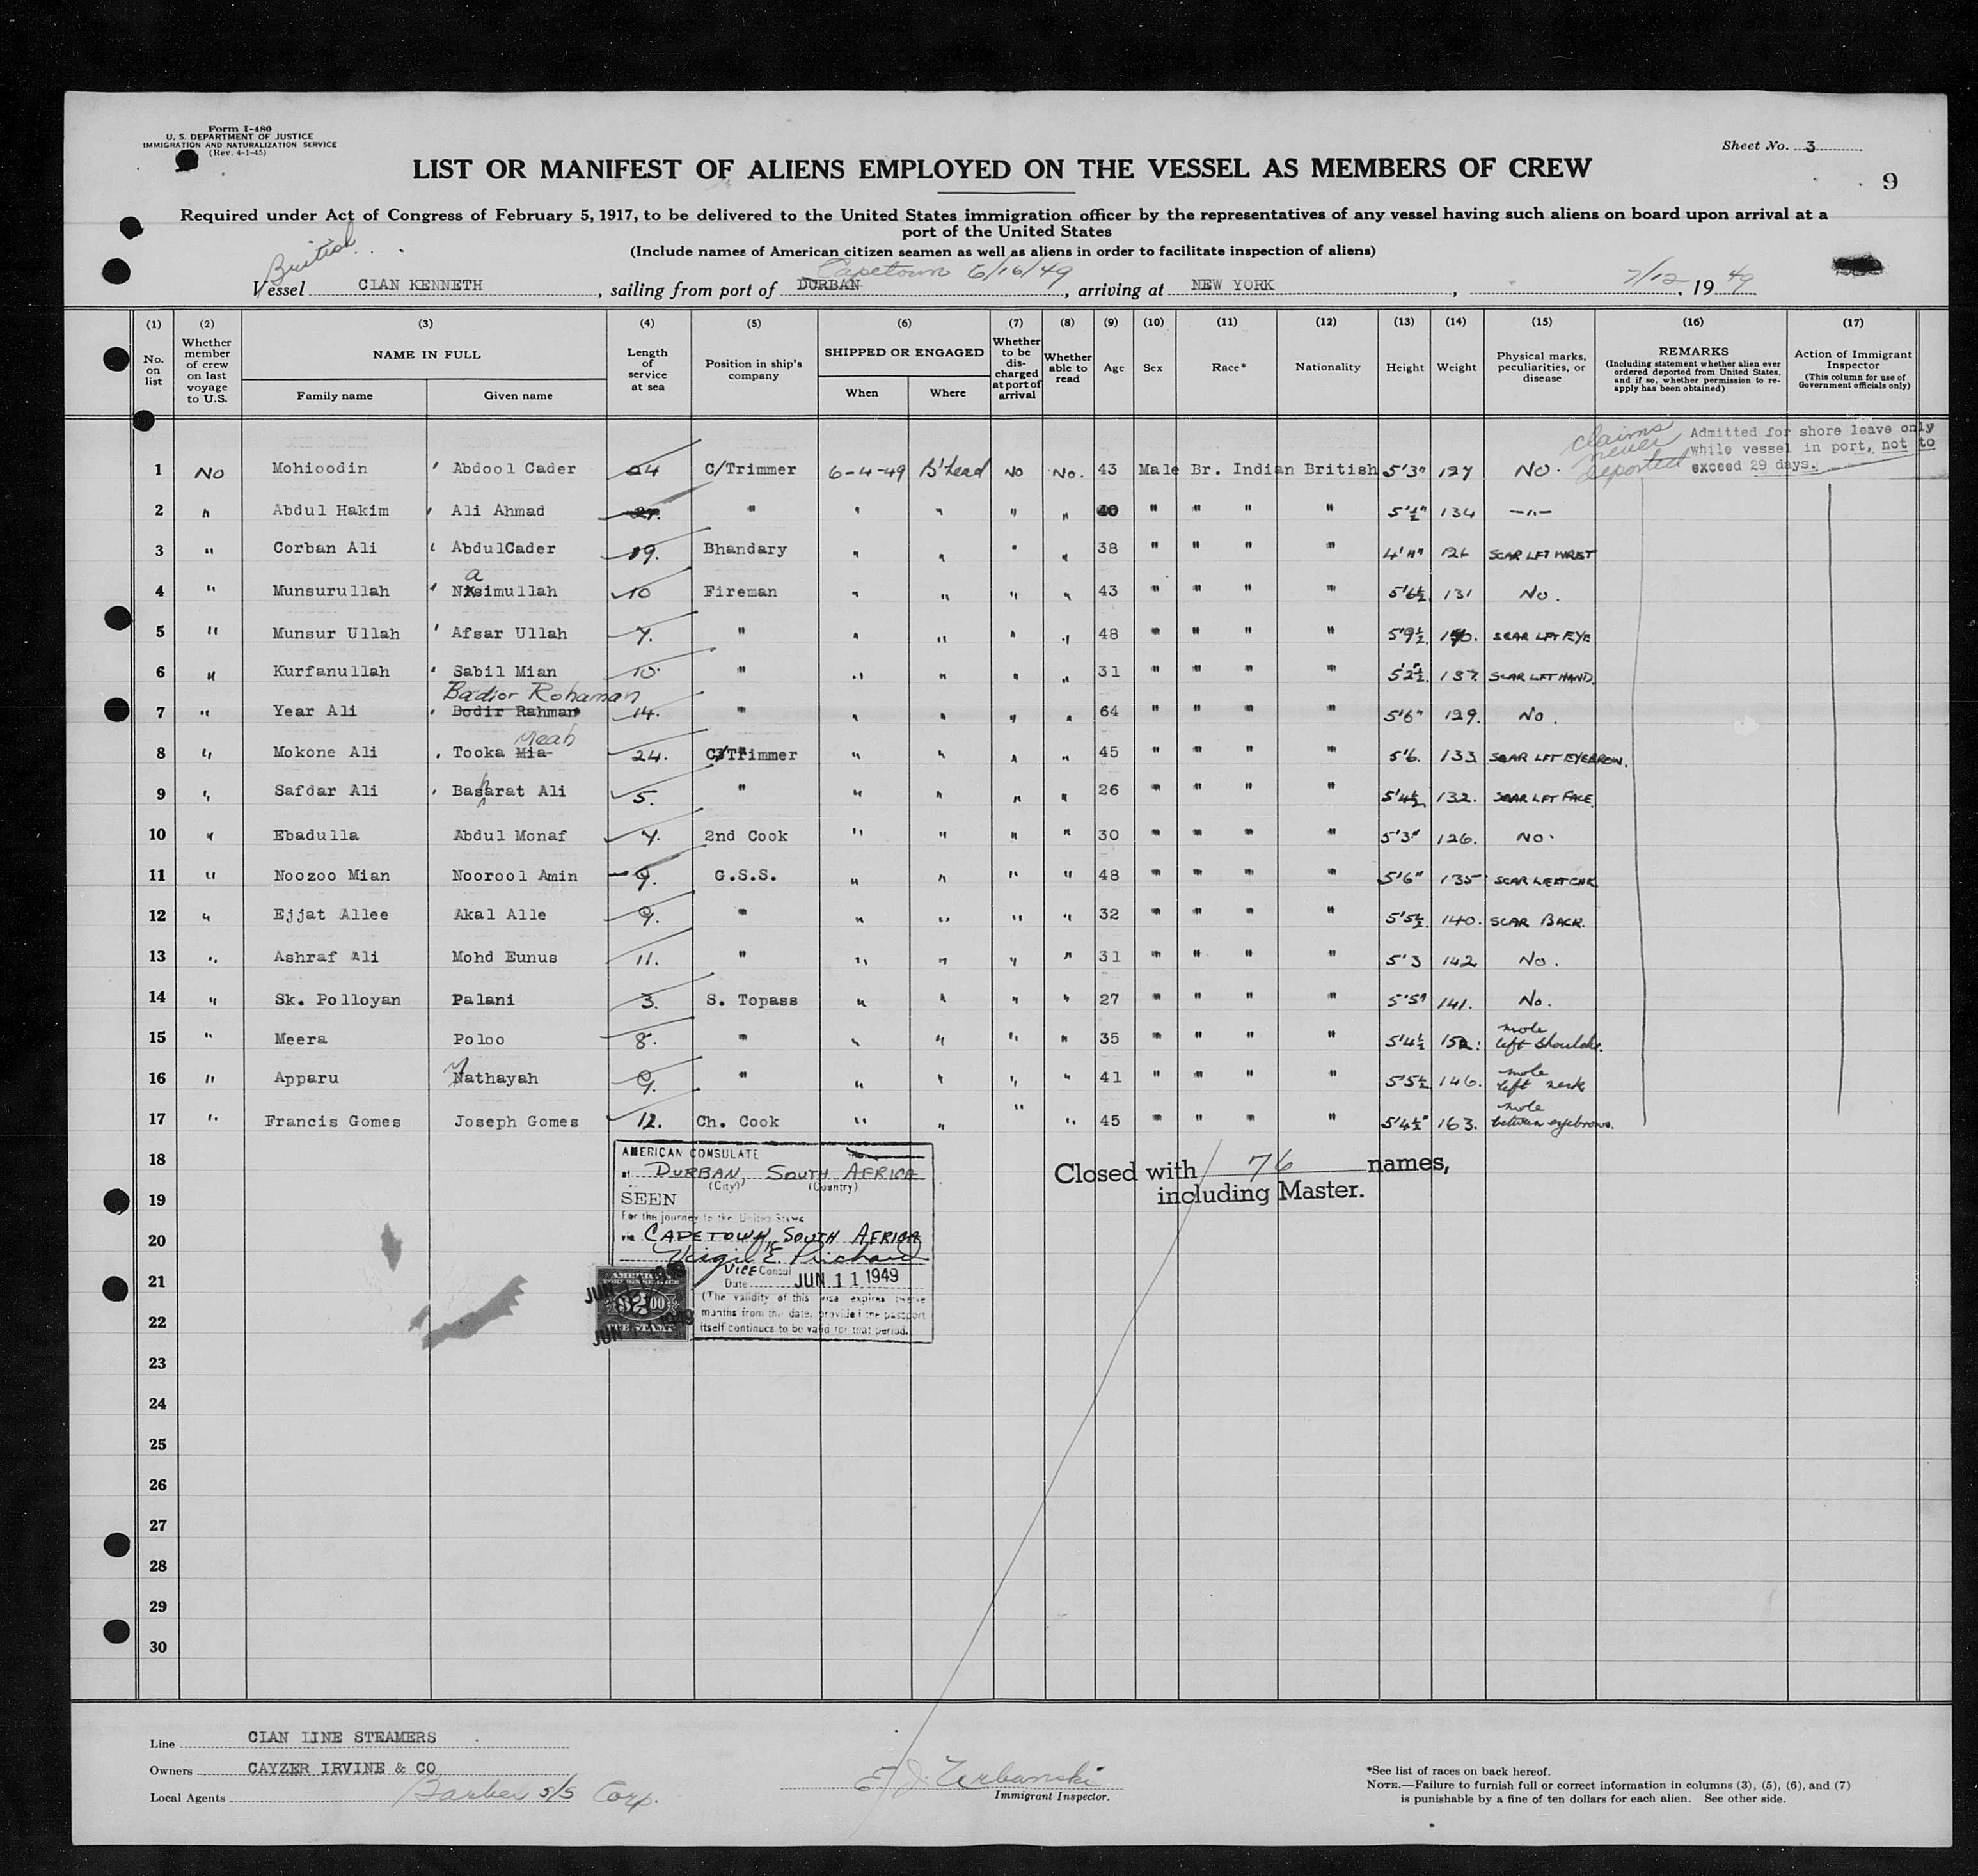 Form I-480
U. S. DEPARTMENT OF JUSTICE
IMMIGRATION AND NATURALIZATION SERVICE
(Rev. 4-1-45)
Sheet No. 3
LIST OR MANIFEST OF ALIENS EMPLOYED ON THE VESSEL AS MEMBERS OF CREW
9
Required under Act of Congress of February 5, 1917, to be delivered to the United States immigration officer by the representatives of any vessel having such aliens on board upon arrival at a
port of the United States
(Include names of American citizen seamen as well as aliens in order to facilitate inspection of aliens)
British
Capetown 6/16/49
Vessel CLAN KENNETH, sailing from port of DURBAN, arriving at NEW YORK, 7/12, 1949
(1) (2) (3) (4) (5) (6) (7) (8) (9) (10) (11) (12) (13) (14) (15) (16) (17)
No. on list
Whether member of crew on last voyage to U.S.
NAME IN FULL
Family name Given name
Length of service at sea
Position in ship's company
SHIPPED OR ENGAGED
When Where
Whether to be discharged at port of arrival
Whether able to read
Age Sex Race* Nationality Height Weight
Physical marks, peculiarities, or disease
REMARKS
(Including statement whether alien ever ordered deported from United States, and if so, whether permission to reapply has been obtained)
Action of Immigrant Inspector
(This column for use of Government officials only)
claims never deported
Admitted for shore leave only
while vessel in port, not to
exceed 29 days.
1 No Mohioodin Abdool Cader 24 C/Trimmer 6-4-49 B'head No No. 43 Male Br. Indian British 5'3" 127 No.
2 " Abdul Hakim Ali Ahmad " " " " " 40 " " " " 134 —"—
3 " Corban Ali AbdulCader 19. Bhandary " " " " 38 " " " " 4'11" 126 SCAR LFT WRIST
4 " Munsurullah Nasimullah 10 Fireman " " " " 43 " " " " 5'6½ 131 No.
5 " Munsur Ullah Afsar Ullah 7. " " " " " 48 " " " " 5'9½ SCAR LFT EYE
6 " Kurfanullah Sabil Mian 10 " " " " " 31 " " " " 5'2½ 137 SCAR LFT HAND.
Badior Rohaman
7 " Year Ali Bodir Rahman 14. " " " " " 64 " " " " 5'6" 129. No.
Meah
8 " Mokone Ali Tooka Mia 24. C/Trimmer " " " " 45 " " " " 5'6. 133 SCAR LFT EYEBROW.
9 " Safdar Ali Basharat Ali 5. " " " " " 26 " " " " 5'4½ 132. SCAR LFT FACE
10 " Ebadulla Abdul Monaf 7. 2nd Cook " " " " 30 " " " " 5'3" 126. No.
11 " Noozoo Mian Noorool Amin 9. G.S.S. " " " " 48 " " " " 5'6" 135 SCAR LEFT CHK
12 " Ejjat Allee Akal Alle 9. " " " " " 32 " " " " 5'5½ 140. SCAR BACK.
13 " Ashraf Ali Mohd Eunus 11. " " " " " 31 " " " " 5'3 142 No.
14 " Sk. Polloyan Palani 3. S. Topass " " " " 27 " " " " 5'5" 141. No.
15 " Meera Poloo 8. " " " " " 35 " " " " 5'4½ 152. mole left shoulder.
16 " Apparu Mathayah 9. " " " " " 41 " " " " 5'5½ 146. mole left neck
17 " Francis Gomes Joseph Gomes 12. Ch. Cook " " " " 45 " " " " 5'4½" 163. mole between eyebrows.
18
19
20
21
22
23
24
25
26
27
28
29
30
AMERICAN CONSULATE
at DURBAN, SOUTH AFRICA
(City) (Country)
SEEN
For the journey to the United States
via CAPETOWN, SOUTH AFRICA
Virgil E. Prichard
VICE Consul
Date JUN 11 1949
(The validity of this visa expires twelve
months from the date, provided the passport
itself continues to be valid for that period.
AMERICAN
FOREIGN SERVICE
$2.00
FEE STAMP
Closed with 76 names,
including Master.
Line CLAN LINE STEAMERS
Owners CAYZER IRVINE & CO
Local Agents Barber S/S Corp.
E J. Urbanski
Immigrant Inspector.
*See list of races on back hereof.
NOTE.—Failure to furnish full or correct information in columns (3), (5), (6), and (7)
is punishable by a fine of ten dollars for each alien. See other side.